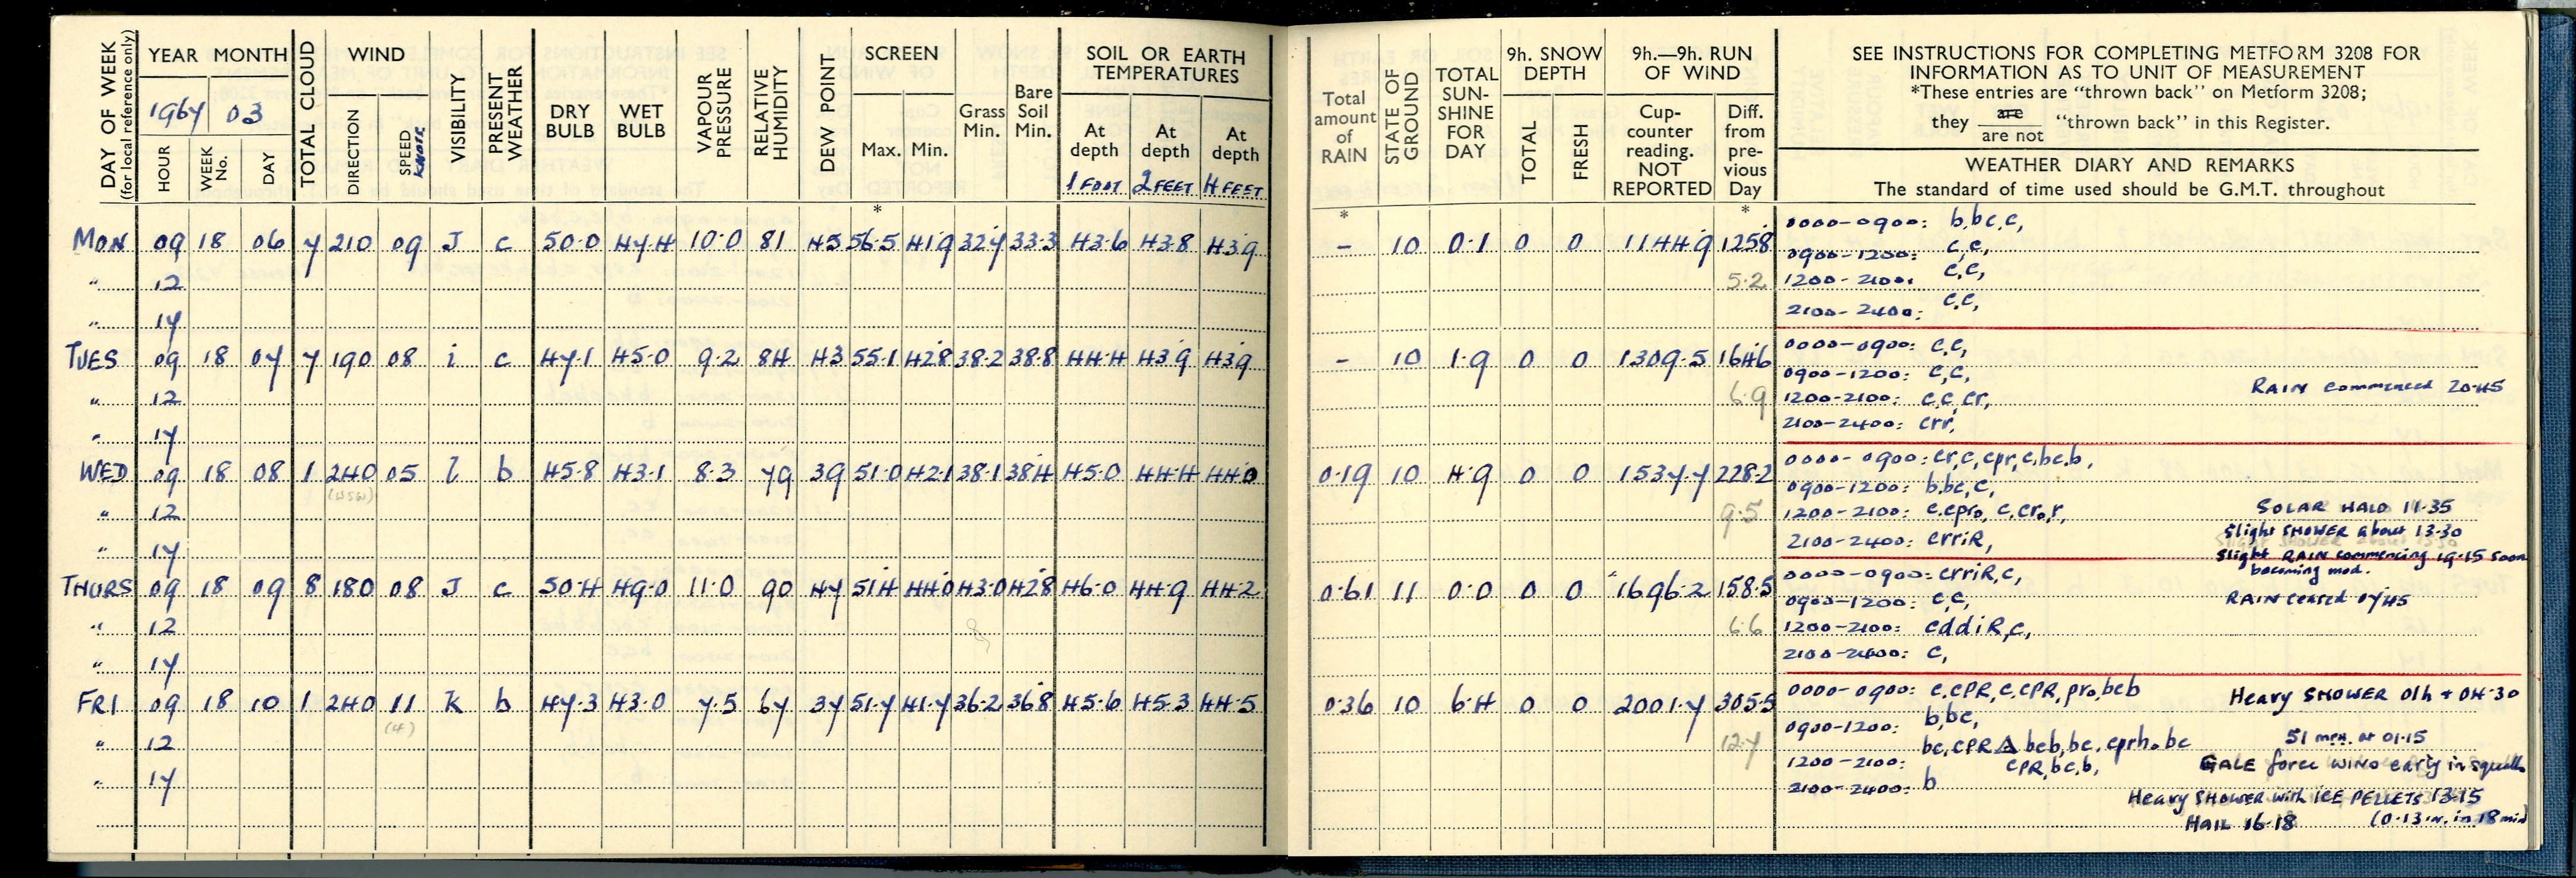 DAY OF WEEK
(for local reference only)
YEAR MONTH
1967 03
HOUR
WEEK No.
DAY
TOTAL CLOUD
WIND
DIRECTION
SPEED
KNOTS
VISIBILITY
PRESENT WEATHER
DRY BULB
WET BULB
VAPOUR PRESSURE
RELATIVE HUMIDITY
DEW POINT
SCREEN
Max. Min.
*
Grass Min.
Bare Soil Min.
SOIL OR EARTH
TEMPERATURES
At depth At depth At depth
1 FOOT 2 FEET 4 FEET
Total amount of RAIN
*
STATE OF GROUND
TOTAL SUN-SHINE FOR DAY
9h. SNOW DEPTH
TOTAL
FRESH
9h.—9h. RUN OF WIND
Cup-counter reading. NOT REPORTED
Diff. from pre-vious Day
*
SEE INSTRUCTIONS FOR COMPLETING METFORM 3208 FOR
INFORMATION AS TO UNIT OF MEASUREMENT
*These entries are "thrown back" on Metform 3208;
they are / are not "thrown back" in this Register.
WEATHER DIARY AND REMARKS
The standard of time used should be G.M.T. throughout
MON 09 18 06 7 210 09 J c 50.0 47.4 10.0 81 45 56.5 41.9 32.7 33.3 43.6 43.8 43.9 – 10 0.1 0 0 1144.9 125.8 0000-0900: b,bc,c,
0900-1200: c,c,
" 12 5.2 1200-2100: c,c,
" 17 2100-2400: c,c,
TUES 09 18 07 7 190 08 i c 47.1 45.0 9.2 84 43 55.1 42.8 38.2 38.8 44.4 43.9 43.9 – 10 1.9 0 0 1309.5 164.6 0000-0900: c,c,
0900-1200: c,c, RAIN commenced 20.45
" 12 6.9 1200-2100: c,c,cr,
" 17 2100-2400: crr,
WED 09 18 08 1 240 05 l b 45.8 43.1 8.3 79 39 51.0 42.1 38.1 38.4 45.0 44.4 44.0 0.19 10 4.9 0 0 1537.7 228.2 0000-0900: cr,c,cpr,c,bc,b,
(WSW) 0900-1200: b,bc,c,
" 12 9.5 1200-2100: c,cpr₀, c,cr₀r, SOLAR HALO 11.35
Slight SHOWER about 13.30
" 17 2100-2400: crriR, Slight RAIN commencing 19.15 soon
becoming mod.
THURS 09 18 09 8 180 08 J c 50.4 49.0 11.0 90 47 51.4 44.0 43.0 42.8 46.0 44.9 44.2 0.61 11 0.0 0 0 1696.2 158.5 0000-0900: crriR,c,
0900-1200: c,c, RAIN ceased 0745
" 12 6.6 1200-2100: cddiR,c,
" 17 2100-2400: c,
FRI 09 18 10 1 240 11 k b 47.3 43.0 7.5 67 37 51.7 41.7 36.2 36.8 45.6 45.3 44.5 0.36 10 6.4 0 0 2001.7 305.5 0000-0900: c,cPR,c,cPR,pr₀,bcb Heavy SHOWER 01h + 04.30
(4) 0900-1200: b,bc,
" 12 12.7 bc,cPR△ bcb,bc,cprh₀bc 51 mph. at 01.15
1200-2100: cPR,bc,b, GALE force WIND early in squalls
" 17 2100-2400: b
Heavy SHOWER with ICE PELLETS 13.15
HAIL 16.18 (0.13 in. in 18 min)